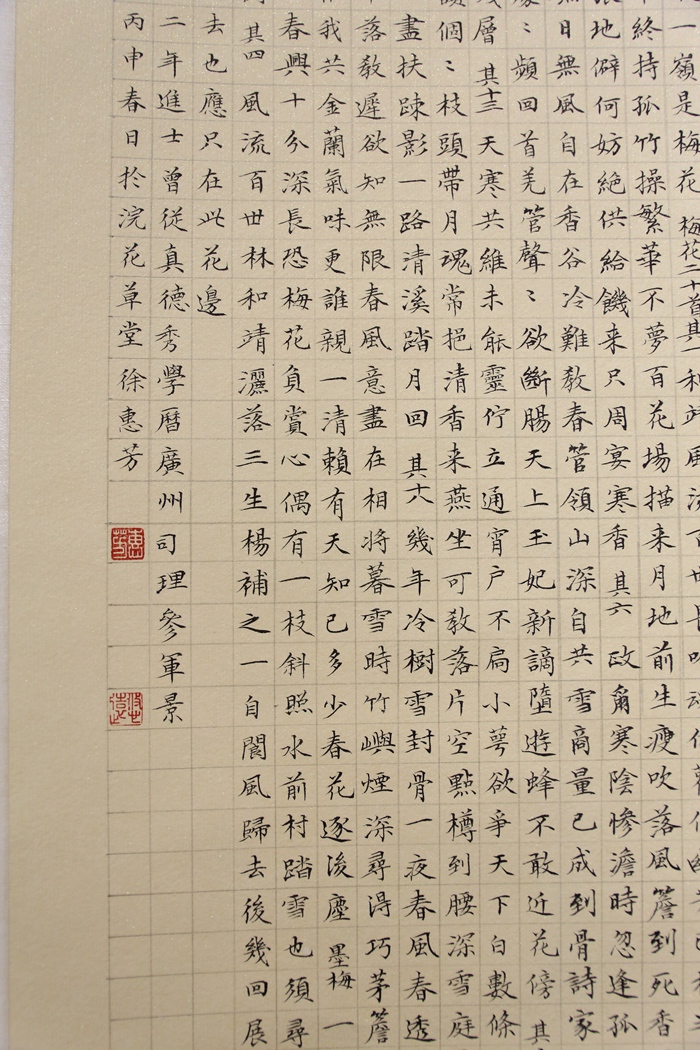 一嶺是梅花 梅花二十首其一 和靖風流百世長吟魂依舊化幽
終持孤竹操繁華不夢百花場描来月地前生瘦吹落風簷到死香
地僻何妨絶供給饑来只周宴寒香 其六 政爾寒陰惨澹時忽逢孤
日無風自在香谷冷難教春管領山深自共雪商量已成到骨詩家
〻頻回首羌管聲〻欲斷腸天上玉妃新謫墮遊蜂不敢近花傍 其
層 其十三 天寒共維未能靈佇立通宵户不扃小萼欲爭天下白數條
個〻枝頭帶月魂常挹清香来燕坐可教落片空點樽到腰深雪庭
盡扶踈影一路清溪踏月回 其十八 幾年冷樹雪封骨一夜春風春透
落教遲欲知無限春風意盡在相將暮雪時竹嶼煙深尋得巧茅簷
我共金蘭氣味更誰親一清賴有天知已多少春花逐後塵 墨梅 一
春興十分深長恐梅花負賞心偶有一枝斜照水前村踏雪也須尋
其四 風流百世林和靖灑落三生楊補之一自閬風歸去後幾回展
去也應只在此花邊
二年進士曾從真德秀學曆廣州司理參軍景
丙申春日於浣花草堂徐惠芳
惠芳